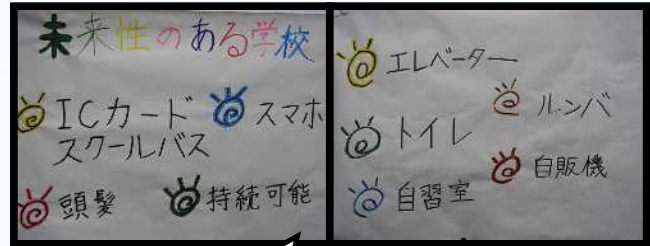 未来性のある学校
ICカード
スクールバス
スマホ
頭髪
持続可能
エレベーター
ルンバ
トイレ
自販機
自習室